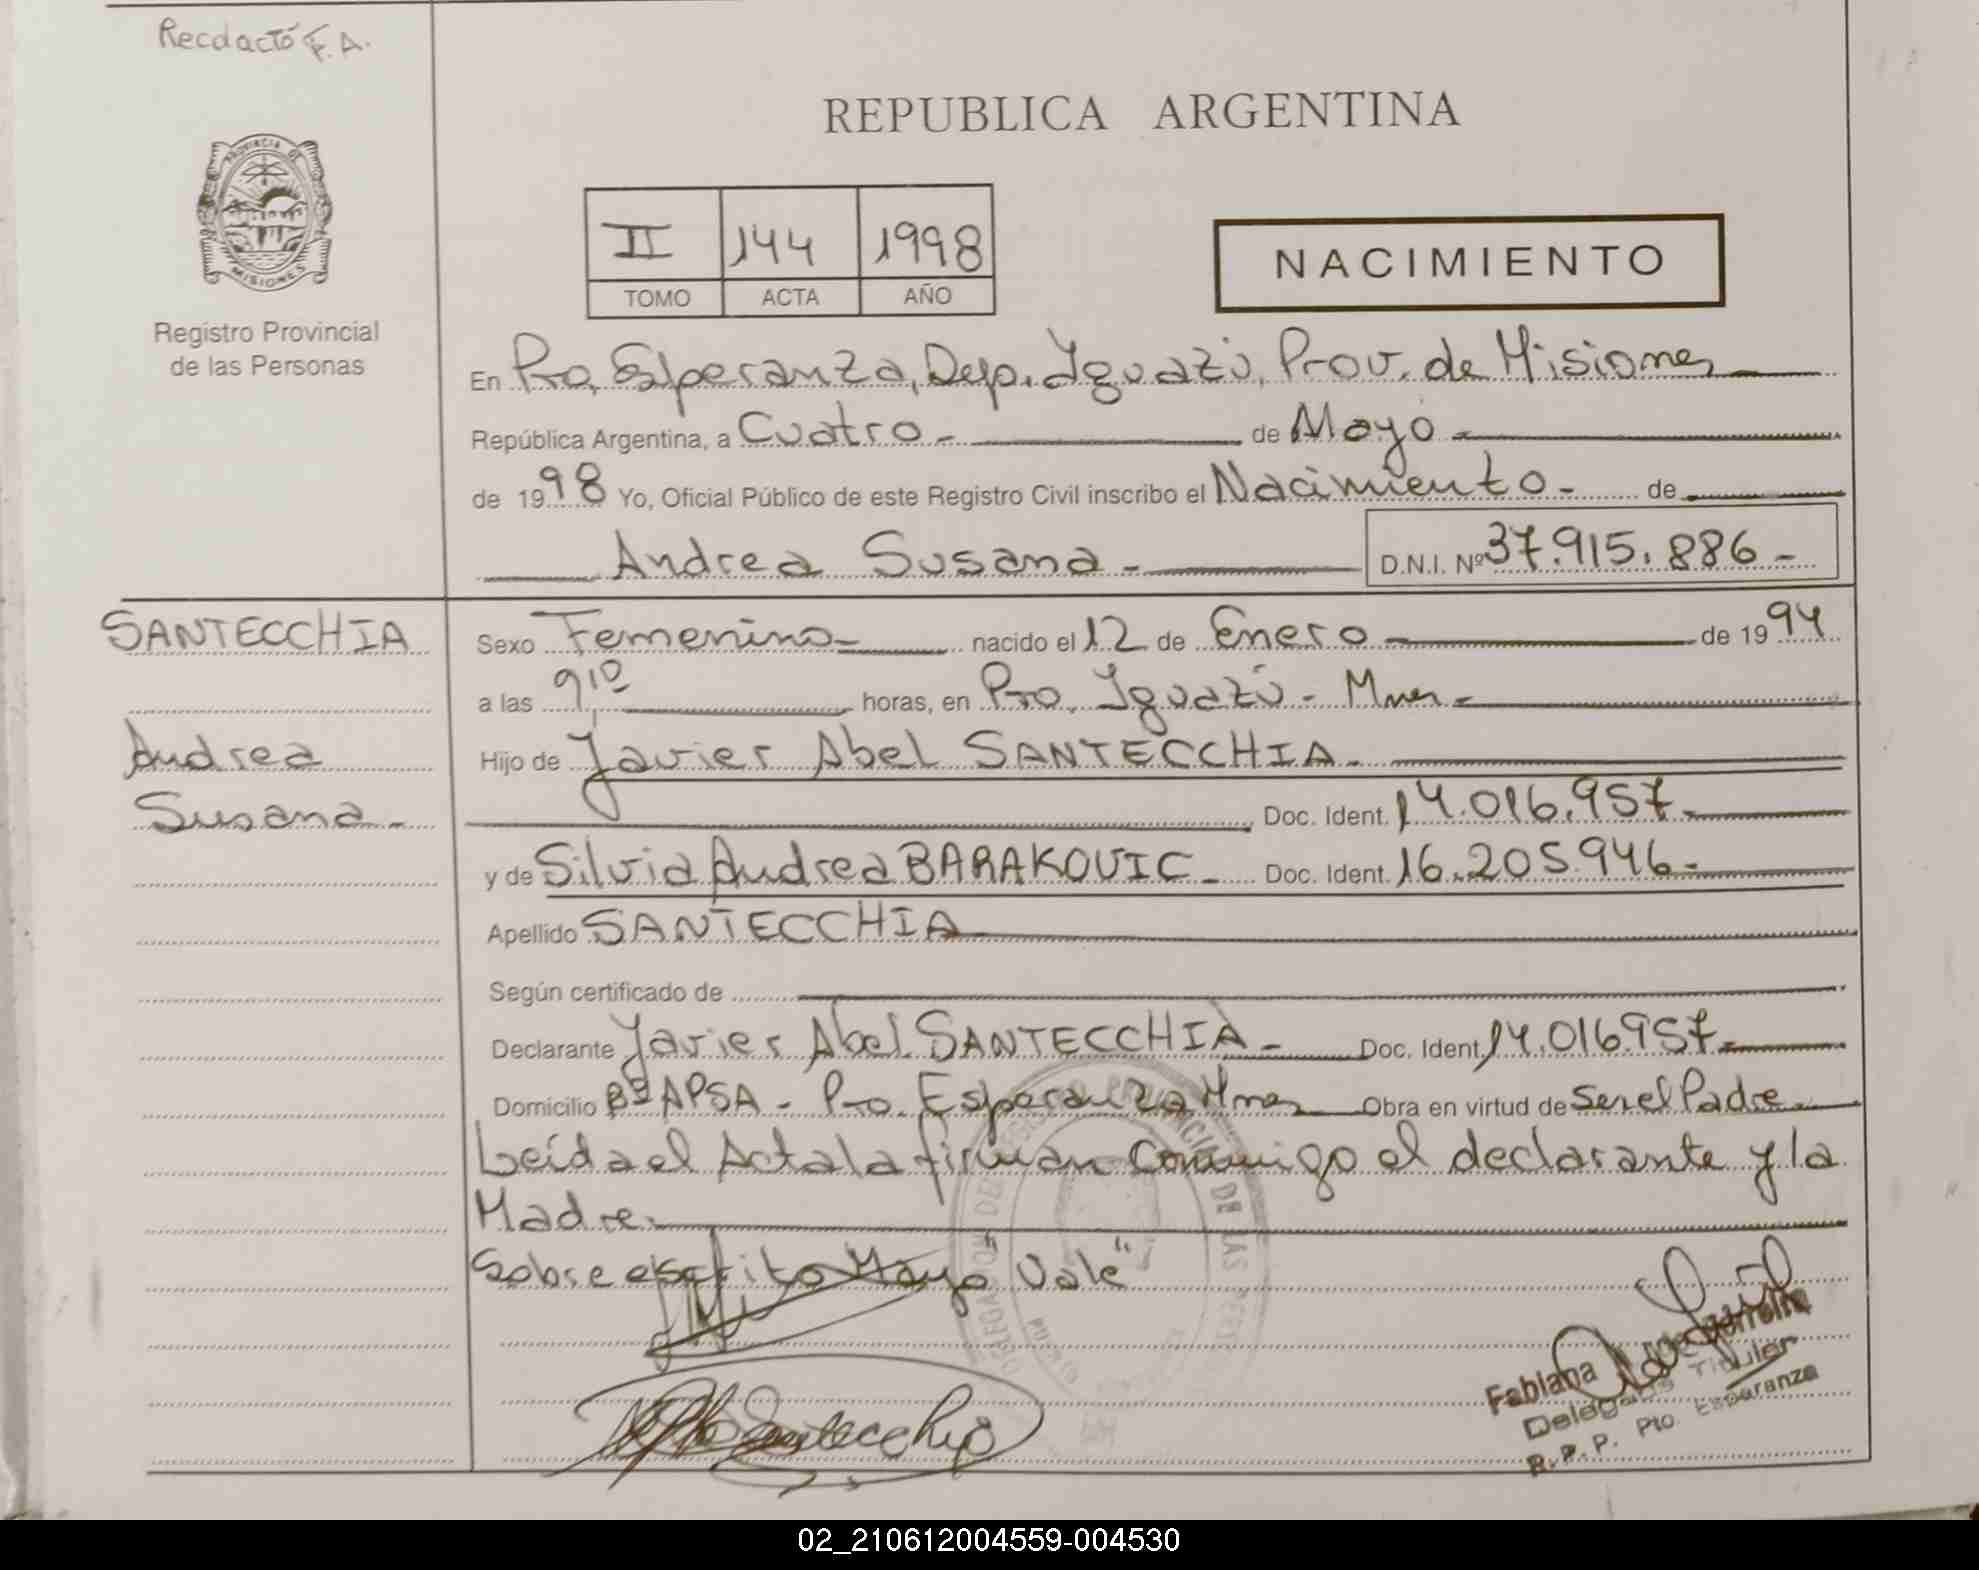 Recdactó F.A.
REPUBLICA ARGENTINA
PROVINCIA DE
MISIONES
Registro Provincial
de las Personas
II 144 1998
TOMO ACTA AÑO
NACIMIENTO
En Pto. Esperanza, Dep. Iguazú, Prov. de Misiones
República Argentina, a Cuatro - de Mayo -
de 1998 Yo, Oficial Público de este Registro Civil inscribo el Nacimiento - de
Andrea Susana - D.N.I. Nº 37.915.886 -
SANTECCHIA
Andrea
Susana -
Sexo Femenino - nacido el 12 de Enero - de 1994
a las 9,10 horas, en Pto. Iguazú - Mnes -
Hijo de Javier Abel SANTECCHIA -
Doc. Ident. 14.016.957 -
y de Silvia Andrea BARAKOVIC - Doc. Ident. 16.205.946 -
Apellido SANTECCHIA
Según certificado de
Declarante Javier Abel SANTECCHIA - Doc. Ident. 14.016957 -
Domicilio Bº APSA - Pto. Esperanza Mnes Obra en virtud de Ser el Padre.
Leída el Acta la firman conmigo el declarante y la
Madre.
Sobre escrito Mayo Vale"
Santecchia
Fabiana
Delegada Titular
R.P.P. Pto. Esperanza
02_210612004559-004530